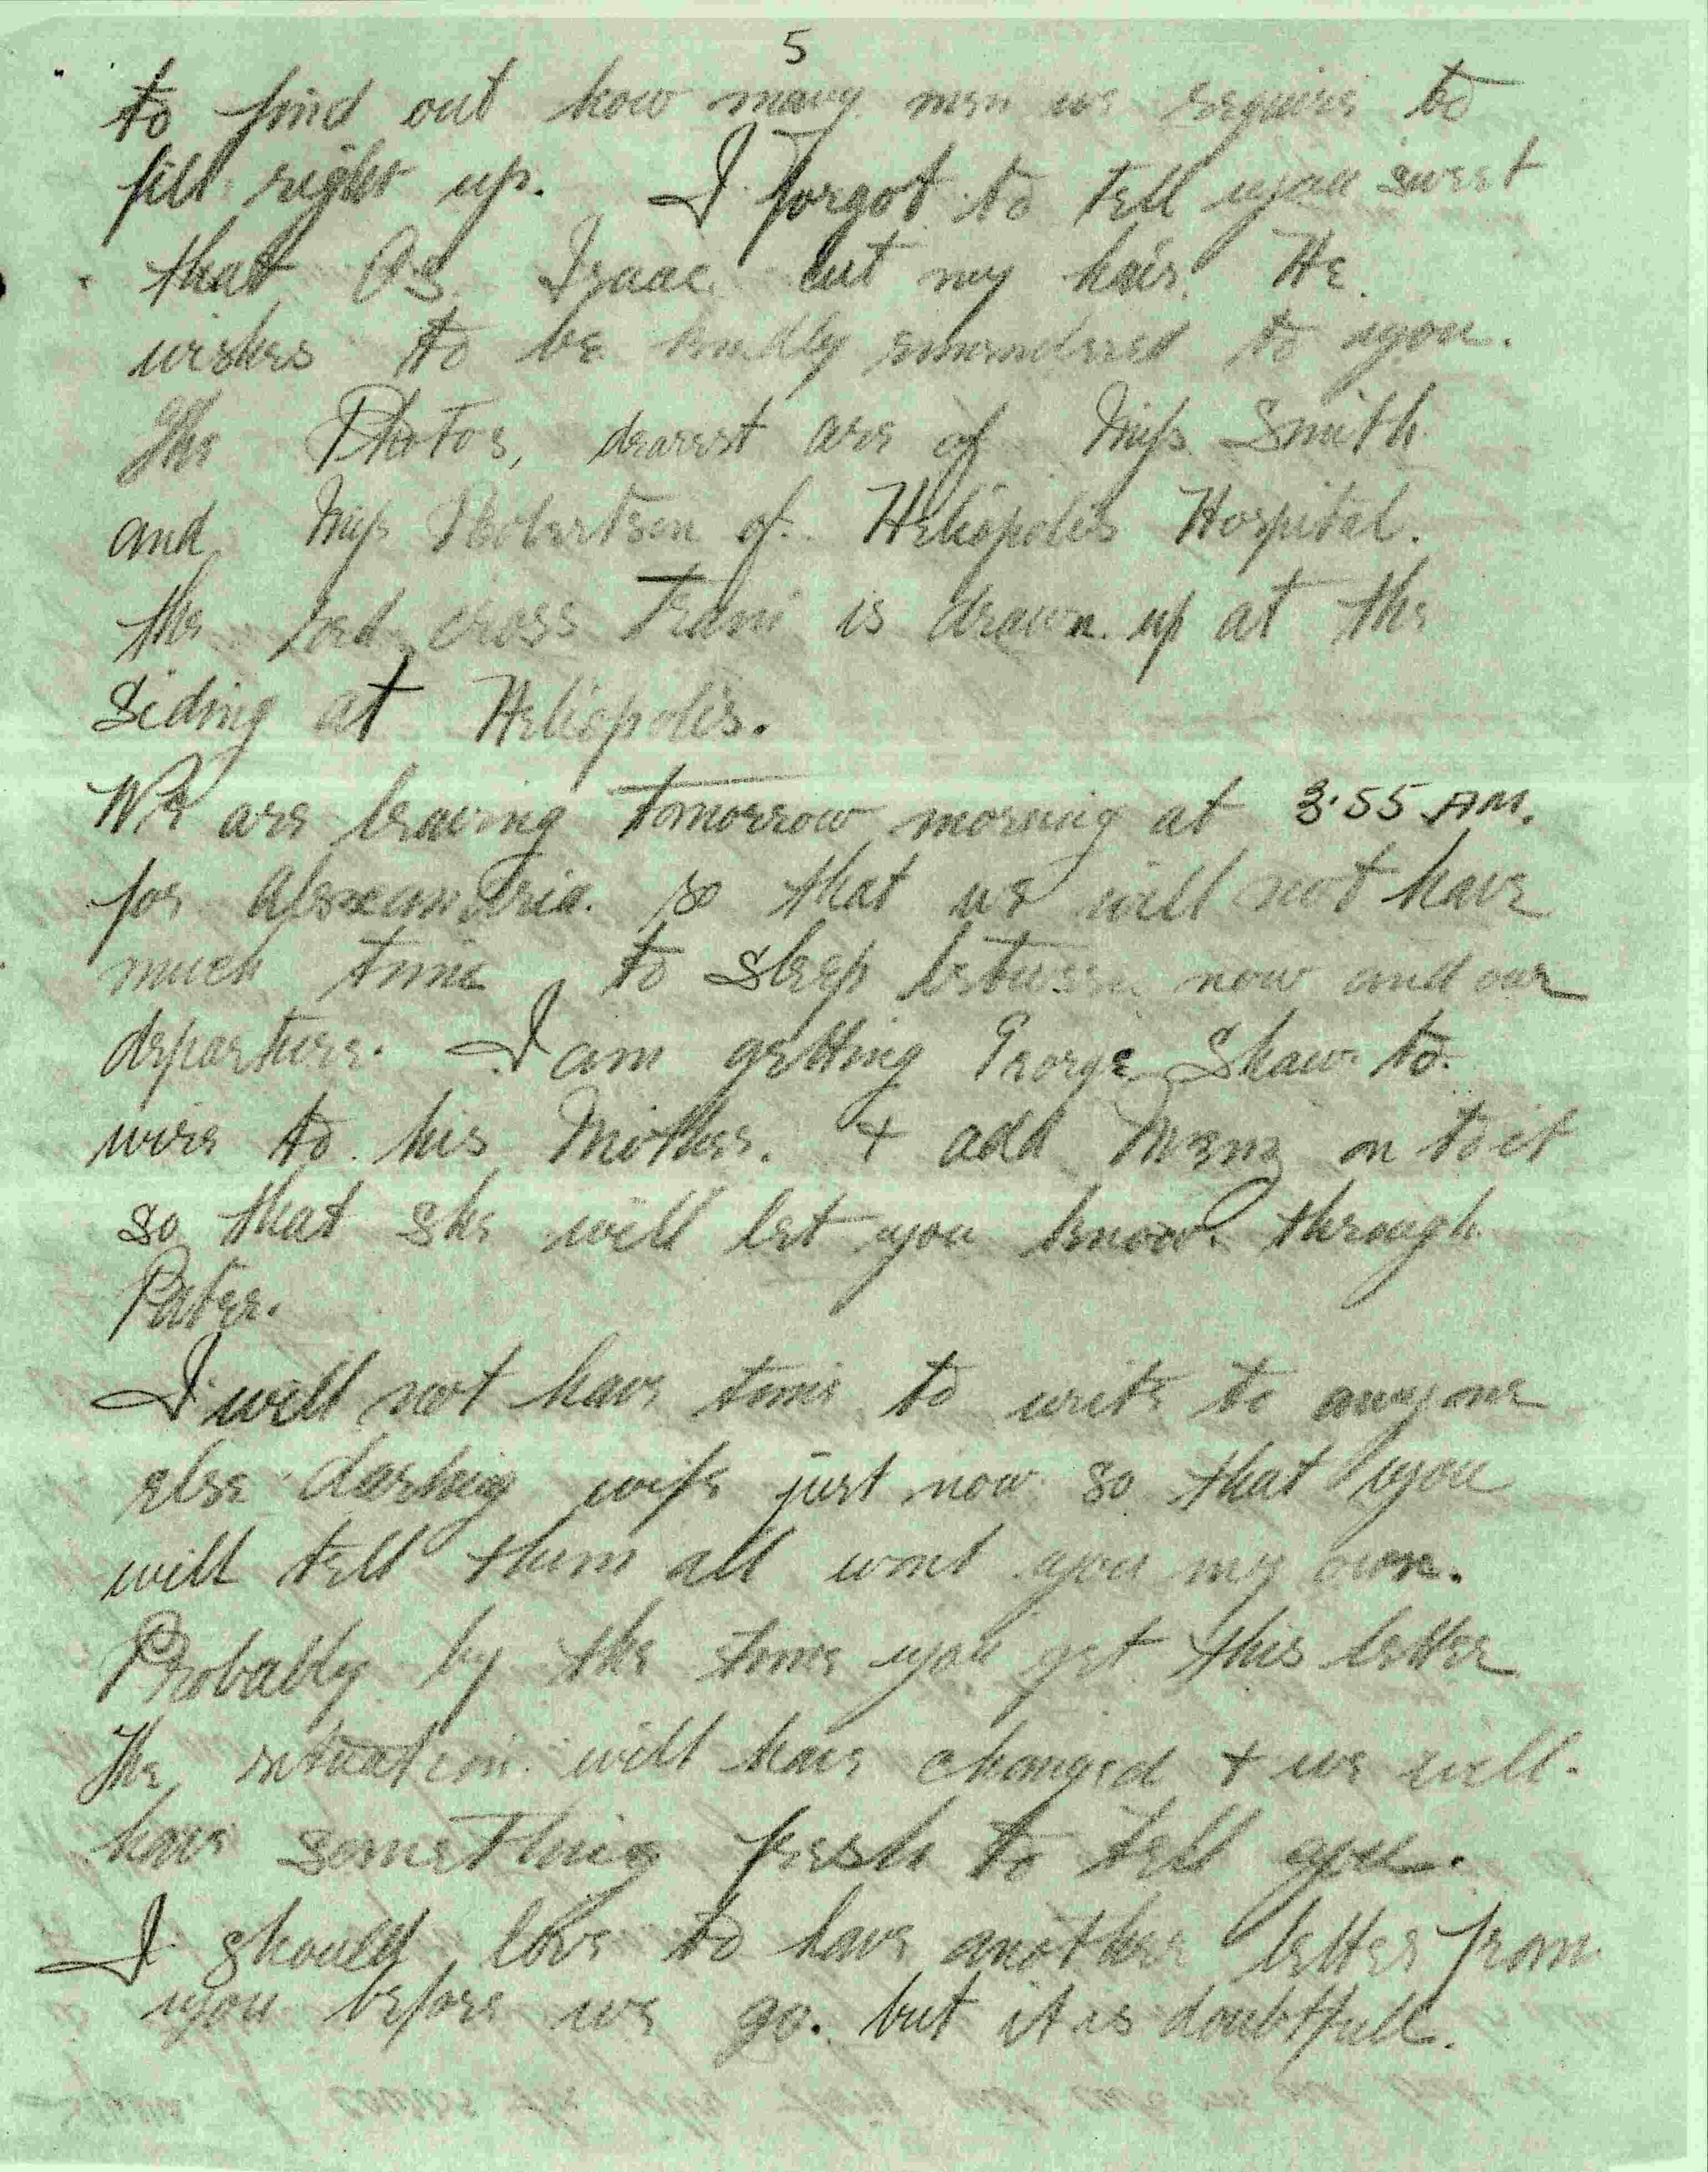 5
to find out how many men we require to
fill right up. I forgot to tell you sweet
that Os Isaac cut my hair. He
wishes to be kindly remembered to you.
The Photos, dearest are of Miss Smith
and Miss Robertson of Heliopolis Hospital.
the red cross Train is drawn up at the
Siding at Heliopolis.
We are leaving tomorrow morning at 3.55 AM.
for Alexandria. so that we will not have
much time to sleep between now and our
departure. I am getting George Shaw to
wire to his Mother. + add on to it
so that she will let you know through
Pater.
I will not have time to write to anyone
else darling wife just now so that you
will tell them all wont you my own.
Probably by the time you get this letter
The situation will have changed + we will
have something fresh to tell you.
I should love to have another letter from
you before we go. but it is doubtfull.